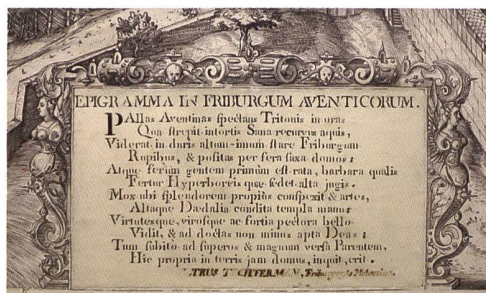 EPIGRAMMA IN FRIBURGUM AVENTICORUM.
PAllas Aventinas spectans Tritonis in oras
Qua strepit intortis Sana recurrens aquis,
Viderat in duris altum-imum stare Friburgum
Rupibus, & positas per fera saxa domos:
Atque ferum gentem primùm est rata, barbara qualis
Fertur Hyperboreis quæ sedet alta jugis.
Mox ubi splendorem propiùs conspexit & artes,
Altaque Dædalia condita templa manu:
Virtutesque, virosque ac fortia pectora bello
Vidit, & ad doctas non minus apta Deas:
Tum subito ad superos & magnum versa Parentem,
Hic propria in terris jam domus, inquit, erit.